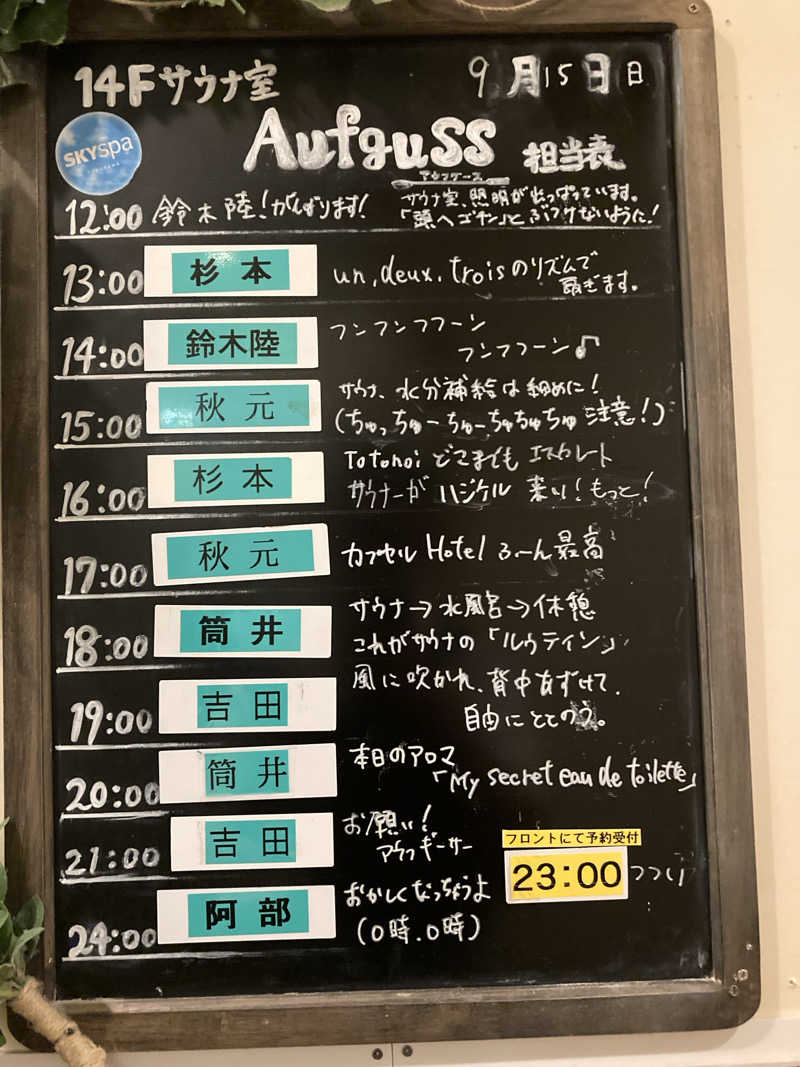 14Fサウナ室
9月15日日
SKYspa
Aufguss 担当表
アウフグース
12:00 鈴木陸!がんばります!
サウナ室、照明が出っぱっています。
「頭へゴチン」とぶつけないように!
13:00 杉本 un,deux,troisのリズムで
扇ぎます。
14:00 鈴木陸 フンフンフフーン
フンフフーン♪
15:00 秋元 サウナ、水分補給は細めに!
(ちゅっちゅーちゅーちゅちゅちゅ注意!)
16:00 杉本 Totonoiどこまでもエスカレート
サウナーがハジケル 来い!もっと!
17:00 秋元 カプセルHotelろ〜ん最高
18:00 筒井 サウナ→水風呂→休憩
これがサウナの「ルゥティン」
19:00 吉田 風に吹かれ、背中あずけて.
自由にととのう。
20:00 筒井 本日のアロマ
「My secret eau de toilette」
21:00 吉田 お願い!
アウフギーサー
フロントにて予約受付
23:00
24:00 阿部 おかしくなっちょうよ
(0時.0時)